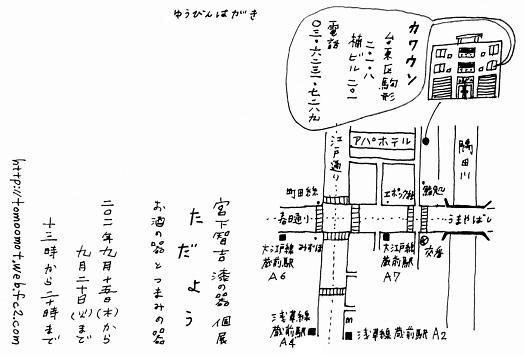 ゆうびんはがき
カワウソ
台東区駒形
二・一・八
楠ビル二〇一
電話
〇三・六二三一・七二八九
隅田川
アパホテル
江戸通り
町田絲店
エポック社
鮨処
春日通り
うまやばし
大江戸線
蔵前駅
A6
みずほ
大江戸線
蔵前駅
A7
交番
浅草線
蔵前駅
A4
m
浅草線 蔵前駅 A2
宮下智吉 漆の器 個展
ただよう
お酒の器とつまみの器
二〇一一年九月十五日(木)から
九月二十日(火)まで
十三時から二十時まで
http://tomoomot.web.fc2.com